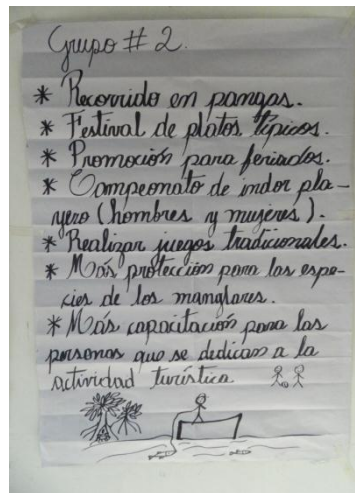 Grupo # 2.
* Recorrido en pangas.
* Festival de platos típicos.
* Promoción para feriados.
* Campeonato de indor pla-
yero (hombres y mujeres).
* Realizar juegos tradicionales.
* Más protección para las espe-
cies de los manglares.
* Más capacitación para las
personas que se dedican a la
actividad turística